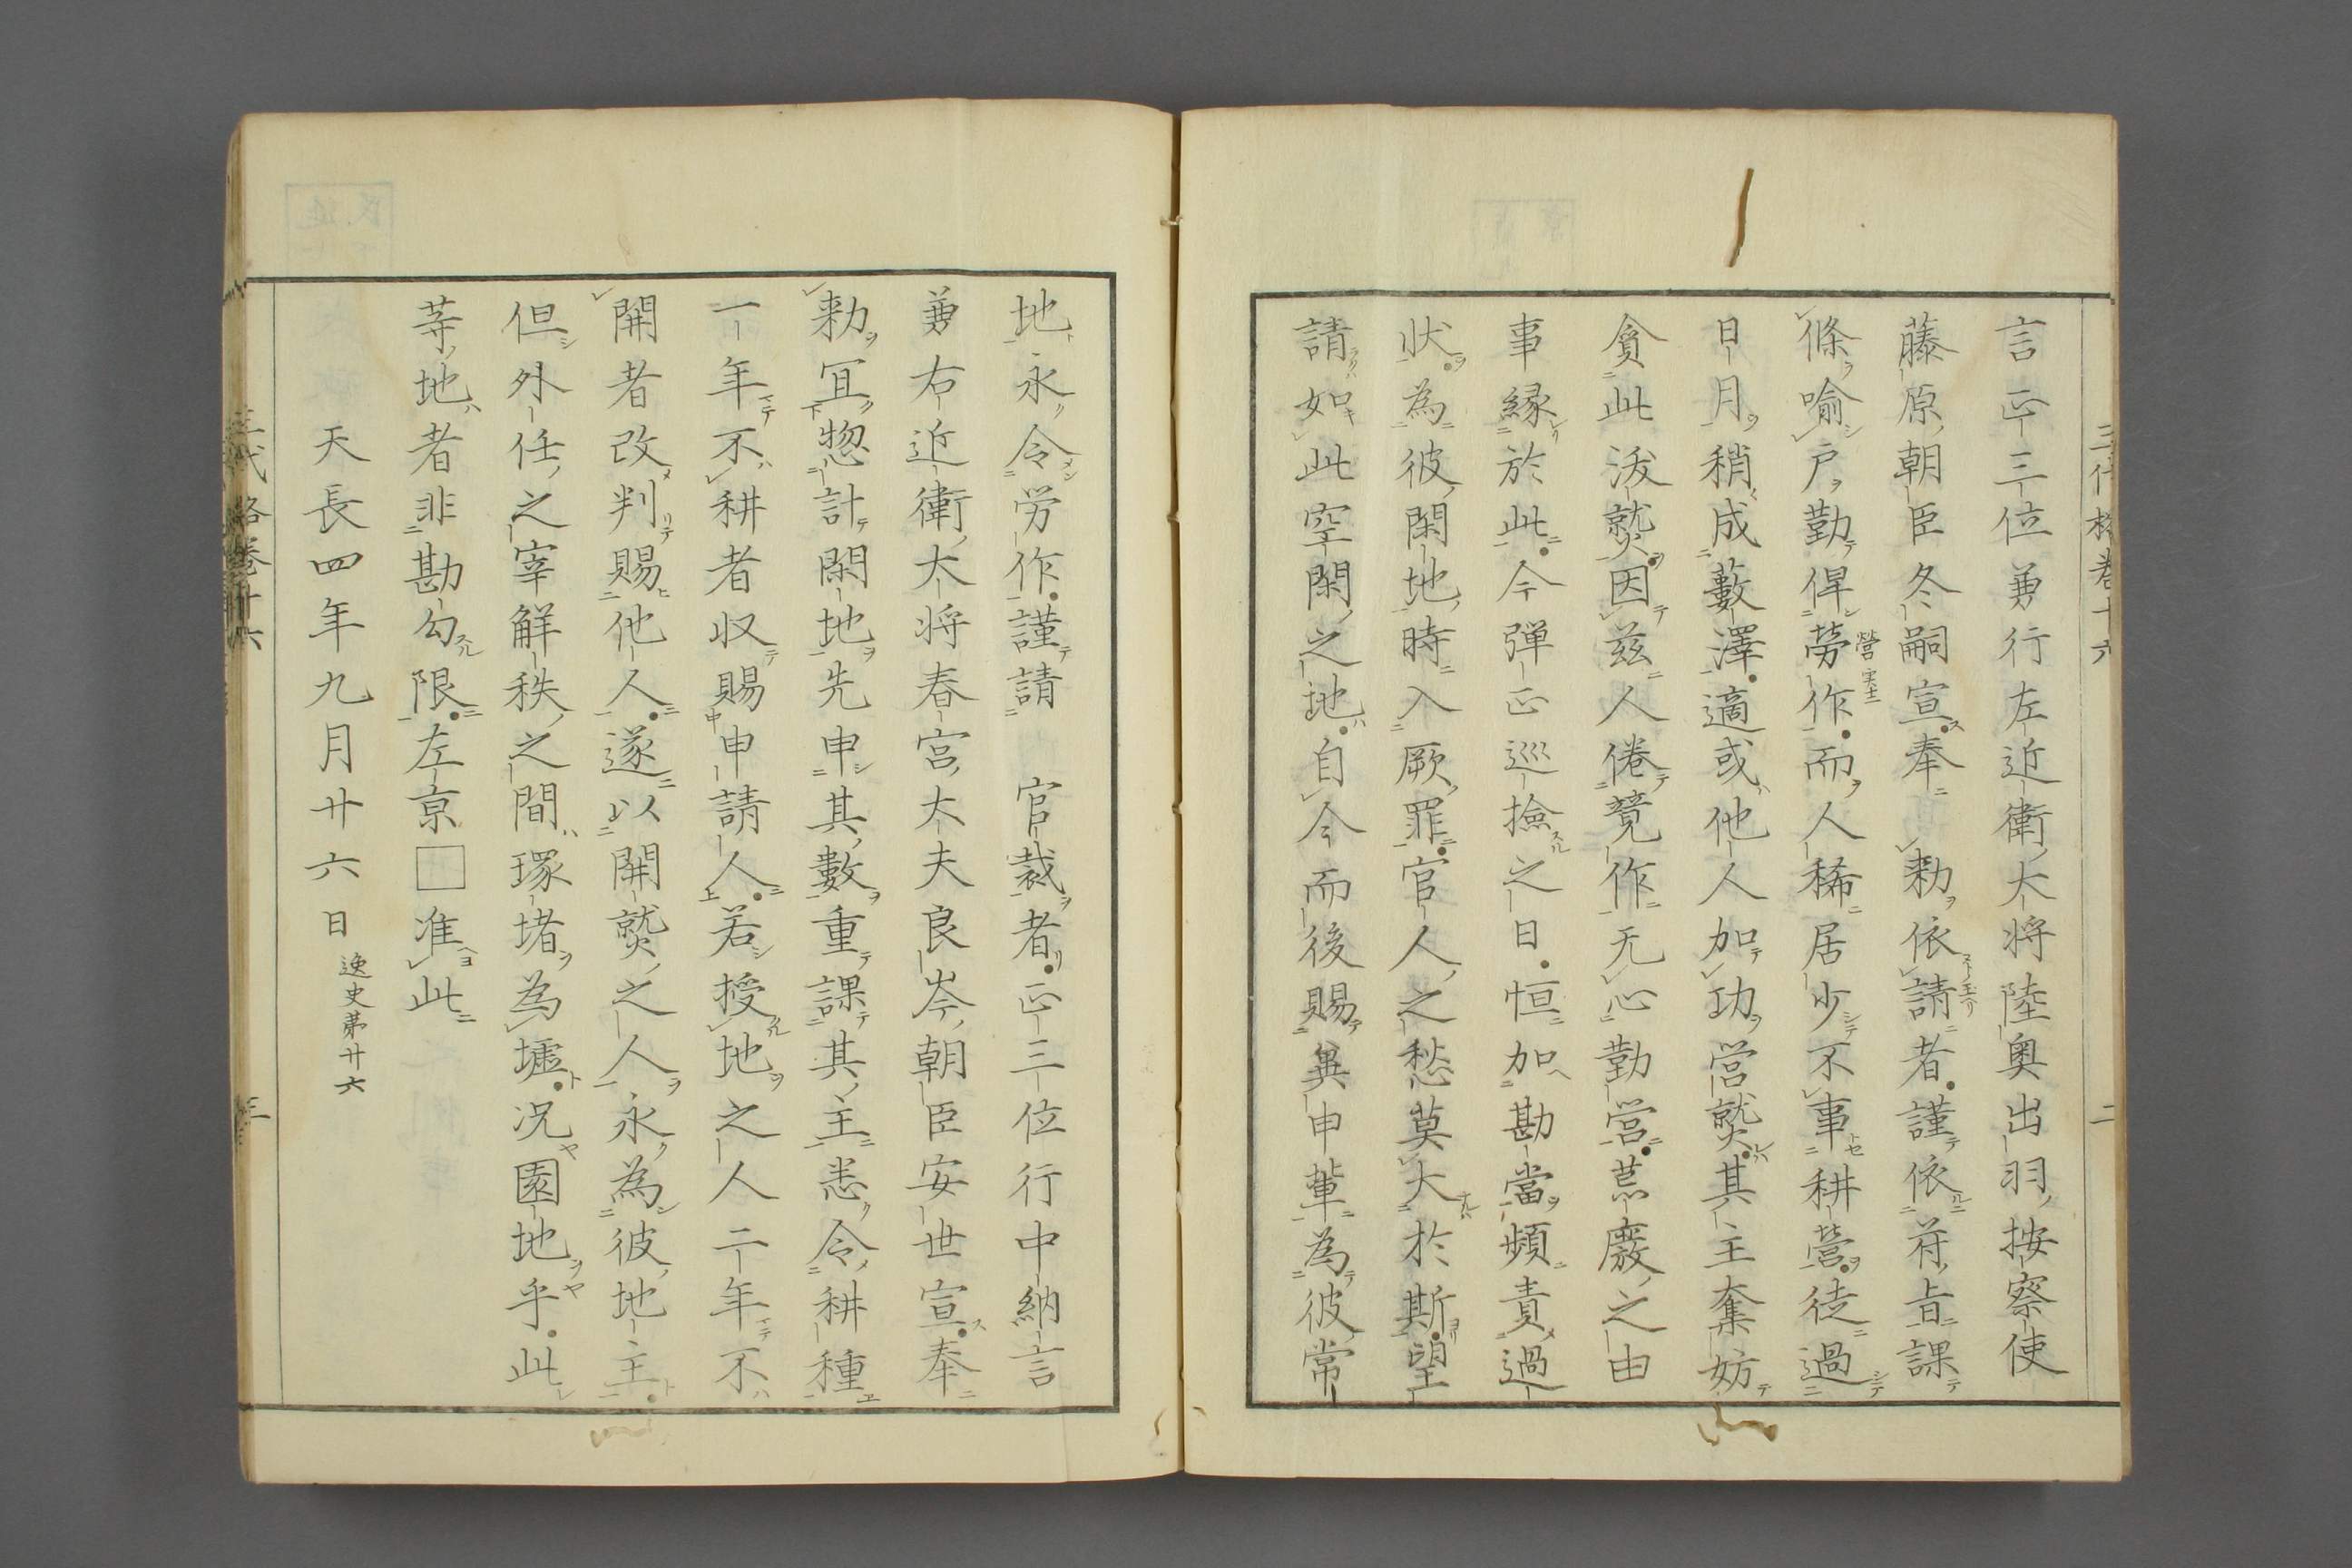 三代格卷十六
二
言正三位兼行左近衛大将陸奥出羽按察使
藤原朝臣冬嗣宣奉　勅依請者謹依符旨課
條喻戸勤俾勞作而人稀居少不事耕營徒過
營実士
日月稍成藪澤適或他人加功営墾其主奪妨
貪此浅墾因兹人倦競作无心勤営荒廢之由
事縁於此今弾正巡撿之日恒加勘當頻責過
状為彼閑地時入厥罪官人之愁莫大於斯望
請如此空閑之地自今而後賜冀申輩為彼常
地永令労作謹請　官裁者正三位行中納言
兼右近衛大将春宮大夫良岑朝臣安世宣奉
勅冝惣計閑地先申其數重課其主悉令耕種
一年不耕者収賜申請人若授地之人二年不
開者改判賜他人遂以開墾之人永為彼地主
但外任之宰解秩之間㙇堵為墟况園地乎此
等地者非勘勾限左京□准此
天長四年九月廿六日 逸史第廿六
三代格卷十六
三